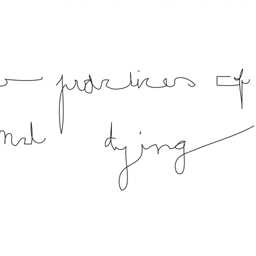 practices of
and dying